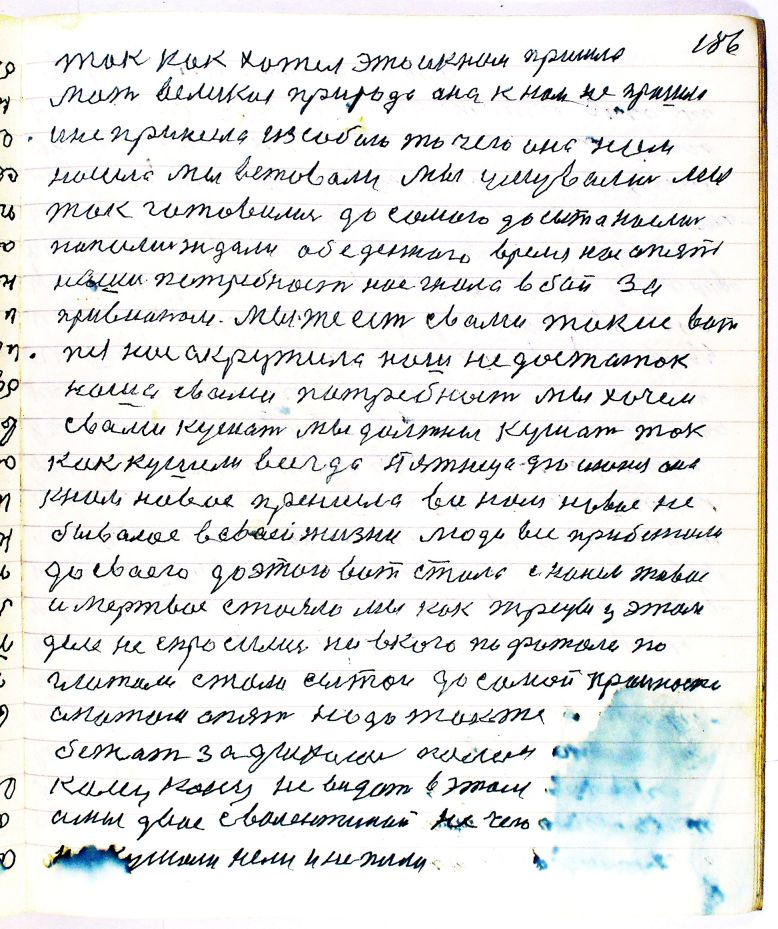 186
так как хотел это и к нам пришла
мат великая природа она к нам не пришла
и не принесла из собою то чего она нам
нашла мы ветовали мы шли
так готовилис до самого досыта наелис
напилис ждали обеденного время нас опят
наши потребност нас гнала в бой за
привматом. мы же ест свами такие вот
нас акружила наш недостаток
наша свами потребност мы хочем
свами кушат мы должны кушат так
как кушали всегда пятница это июня она
к нам новое пренесла все нам новое не
бывалое в своей жизни люди все прибежали
до своего до этого вот стала с нами живое
и мертвое стояло мы как у этом
деле не спросилис ни в кого по
глотали стали сытои до самой прочности
а потом опят надо также
бежат за другим
конец не видат в этом
а мы двое с валентинай не чего
кушали не ели и не пили